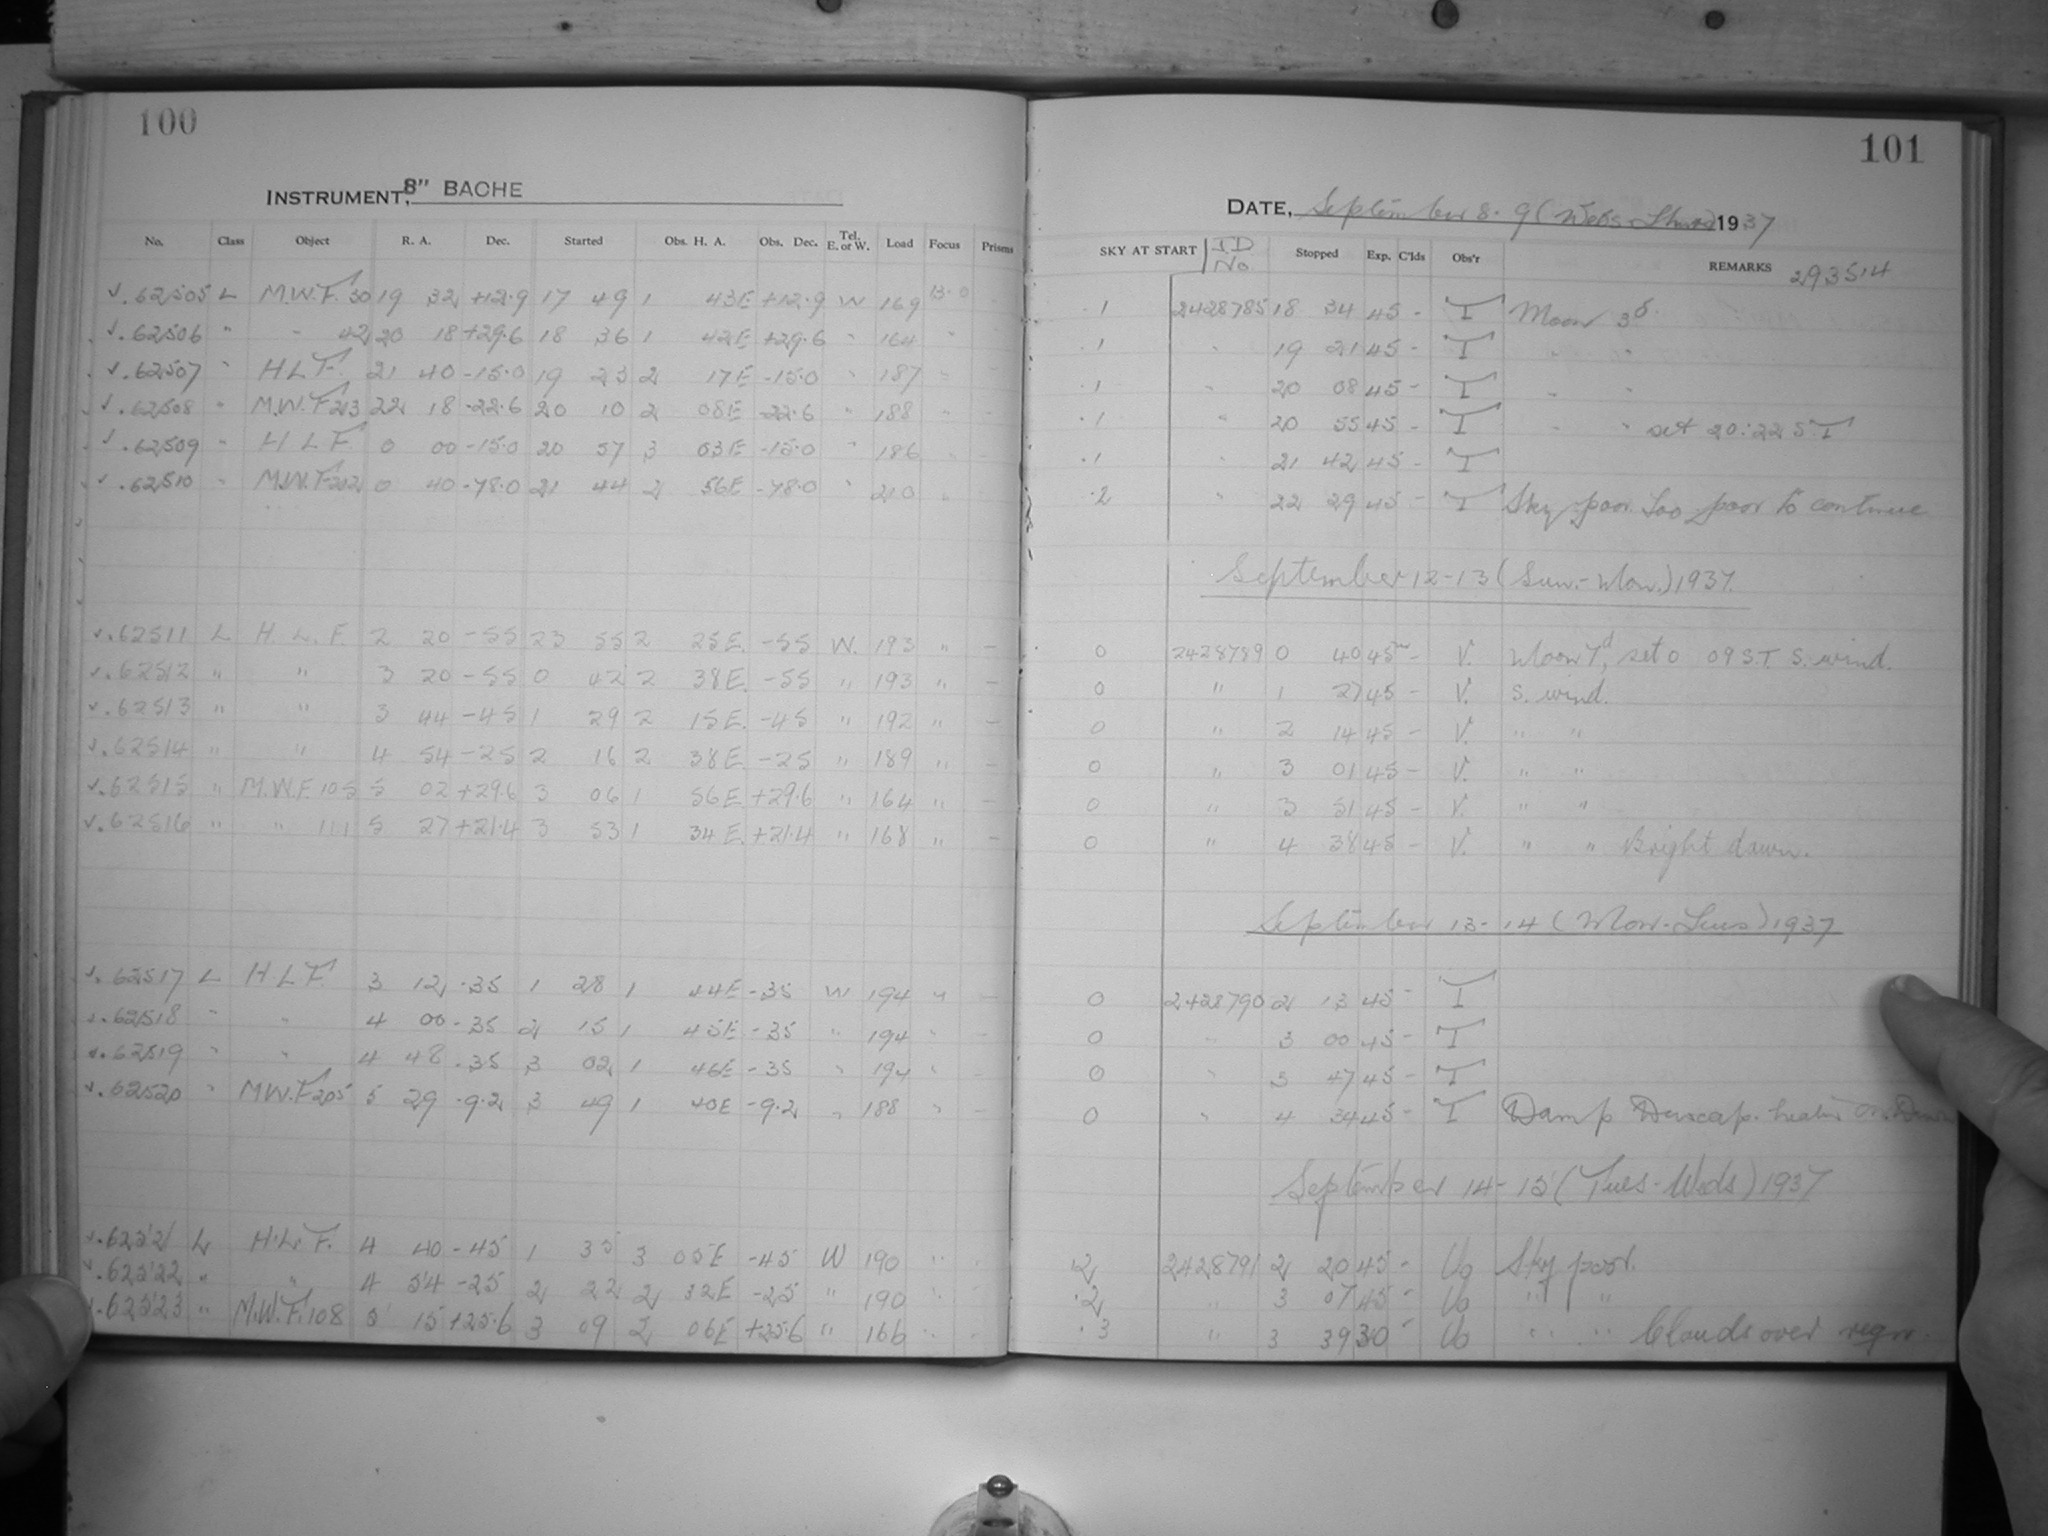 100
INSTRUMENT, 8" BACHE
No. Class Object R. A. Dec. Started Obs. H. A. Obs. Dec. Tel. E. or W. Load Focus Prisms
√.62505 L M.W.F. 30 19 32 +12.9 17 49 1 43E +12.9 W 169 13.0 -
√.62506 " " 42 20 18 +29.6 18 36 1 42E +29.6 " 164 "
√.62507 " H L F. 21 40 -15.0 19 23 2 17E -15.0 " 187 " -
√.62508 " M.W.F 213 22 18 -22.6 20 10 2 08E -22.6 " 188 " -
√.62509 " H L F. 0 00 -15.0 20 57 3 03E -15.0 " 186 " -
√.62510 " M.W.F 212 0 40 -78.0 21 44 2 56E -78.0 " 210 " -
√.62511 L H. L. F. 2 20 -55 23 55 2 25E. -55 W. 193 " -
√.62512 " " 3 20 -55 0 42 2 38E. -55 " 193 " -
√.62513 " " 3 44 -45 1 29 2 15E. -45 " 192 " -
√.62514 " " 4 54 -25 2 16 2 38E. -25 " 189 " -
√.62515 " M.W.F. 105 5 02 +29.6 3 06 1 56E. +29.6 " 164 " -
√.62516 " " 111 5 27 +21.4 3 53 1 34E. +21.4 " 168 " -
√.62517 L H L F. 3 12 -35 1 28 1 44E -35 W 194 " -
√.62518 " " 4 00 -35 2 15 1 45E -35 " 194 " -
√.62519 " " 4 48 -35 3 02 1 46E -35 " 194 " -
√.62520 " M.W.F 205 5 29 -9.2 3 49 1 40E -9.2 " 188 " -
√.62521 L H.L.F. 4 40 -45 1 35 3 05E -45 W 190 " "
√.62522 " " 4 54 -25 2 22 2 32E -25 " 190 " "
√.62523 " M.W.F. 108 5 15 +25.6 3 09 2 06E +25.6 " 166 " "
101
DATE, September 8-9 (Weds-Thurs) 1937
SKY AT START JD No. Stopped Exp. C'lds Obs'r REMARKS 293514
.1 2428785 18 34 45 - T Moon 3d.
.1 " 19 21 45 - T " "
.1 " 20 08 45 - T " "
.1 " 20 55 45 - T " " set 20:22 S.T
.1 " 21 42 45 - T
.2 " 22 29 45 - T Sky poor. Too poor to continue
September 12-13 (Sun.-Mon.) 1937.
0 2428789 0 40 45 - V. Moon 7d, set 0 09 S.T. S. wind.
0 " 1 27 45 - V. S. wind.
0 " 2 14 45 - V. " "
0 " 3 01 45 - V. " "
0 " 3 51 45 - V. " "
0 " 4 38 45 - V. " " Bright dawn.
September 13-14 (Mon-Tues) 1937
0 2428790 2 13 45 - T
0 " 3 00 45 - T
0 " 3 47 45 - T
0 " 4 34 45 - T Damp Dewcap. heater on.
September 14-15 (Tues-Weds) 1937
.2 2428791 2 20 45 - Uo Sky poor.
.2 " 3 07 45 - Uo " "
.3 " 3 39 30 - Uo " " Clouds over